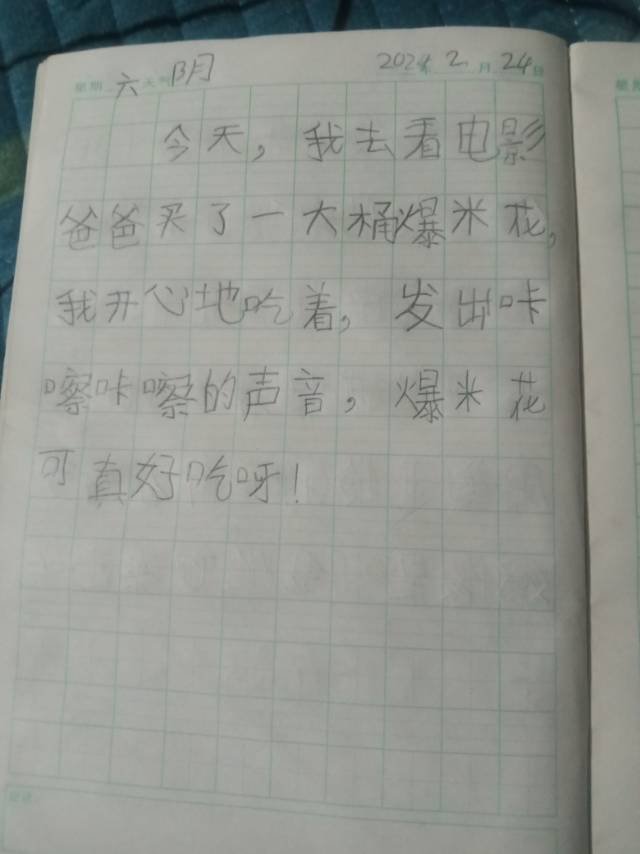 星期六 天气阴 2024年2月24日
今天，我去看电影
爸爸买了一大桶爆米花，
我开心地吃着，发出咔
嚓咔嚓的声音，爆米花
可真好吃呀！